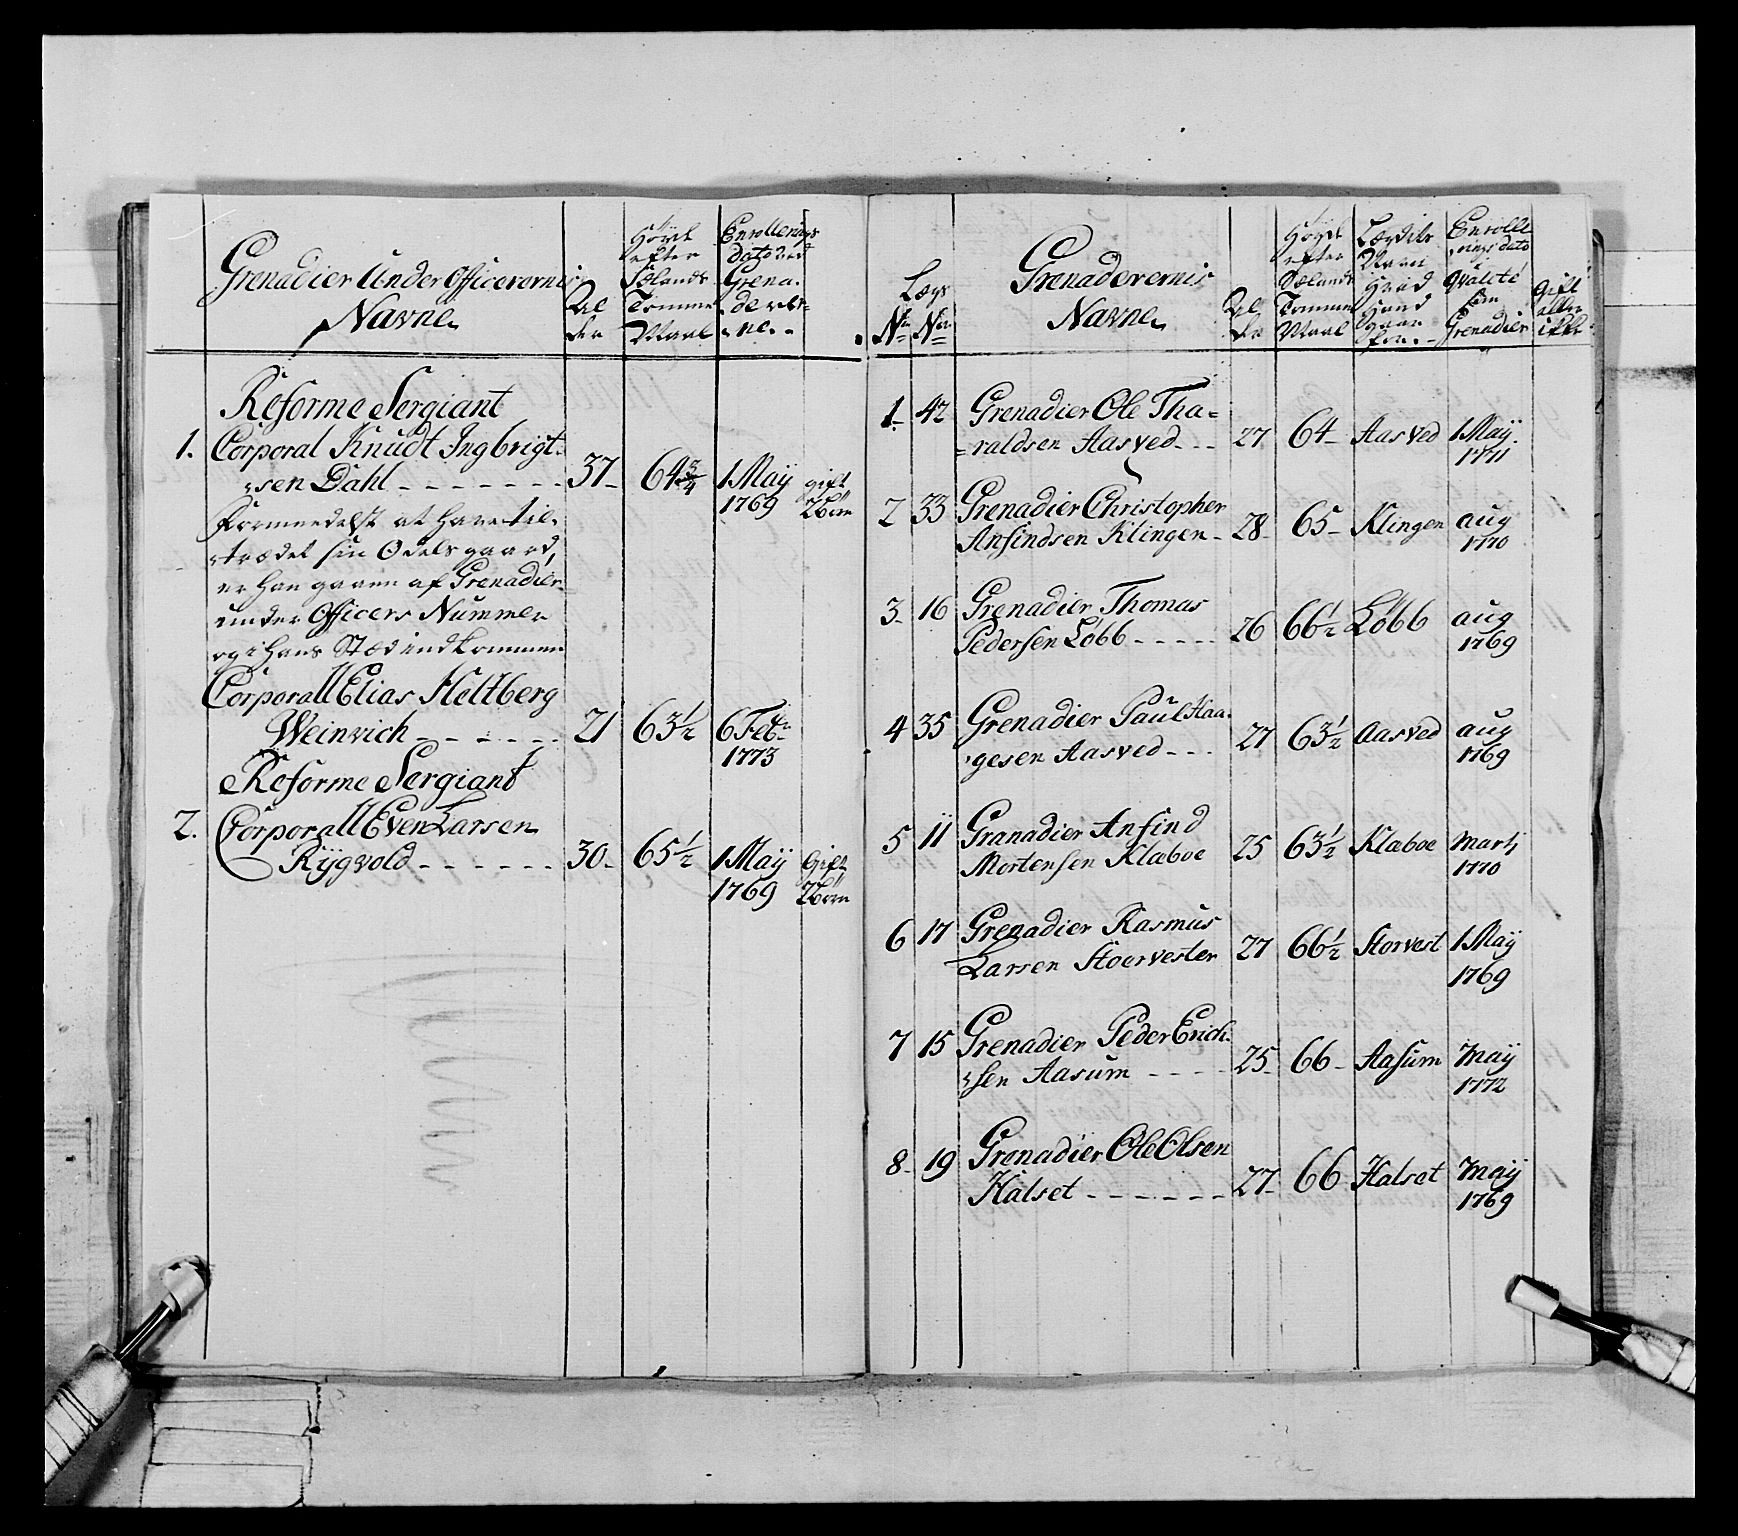 Grenadier Under Officerernis
Navne
Al
der
Höyd
efter
Sælands
Tomme
Maal
Enrollerings
dato ved
Grena-
dererne
Reforme Sergiant
1. Corporal Knudt Ingbrigt-
sen Dahl - - - - - - - 37- 64 3/4 1 Maÿ 1769 gift 2 Börn
Formedelst at have til-
trædet sin Odels gaard,
er han gaaen af Grenadier
under Officers Nummer
og i hans Stæd indkommen
Corporall Elias Heltberg
Weinrich - - - - - - 21 63 1/2 6 Febr 1773
Reforme Sergiant
2. Corporall Even Larsen
Rÿgvold - - - - - - 30- 65 1/2 1 Maÿ 1769 Gift 2 Börn
No
Lægs
No
Grenaderernis
Navne
Al
der
Höyd
efter
Sælands
Tomme
Maal
Lægdets
Navn
Hvad
Hand
gaar
for
Enrolle
rings dato
Qvalité
som
Grenadier
Gift
eller
ikke
1. 42 Grenadier Ole Tha=
=raldsen Aasved - - - 27 64- Aasved 1 Maÿ 1771
2 33 Grenadier Christopher
Ansindsen Klingen - 28- 65- Klingen aug 1770
3- 16 Grenadier Thomas
Pedersen Löbb - - - - - 26 66 1/2 Löbb aug 1769
4 35 Grenadier Paul Haa-
gesen Aasved - - - 27 63 1/2 Aasved aug 1769
5 11 Granadier Ansind
Mortensen Klæboe 25 63 1/2 Klæboe Martj 1770
6 17 Grenadier Rasmus
Larsen Stoervesten 27 66 1/2 Storvest 1 Maÿ 1769
7 15 Grenadier Peder Erich-
sen Aasum - - - - 25- 66- Aasum Maÿ 1772
8- 19 Grenadier Ole Olsen
Halset - - - - - - - 27- 66 Halset Maÿ 1769